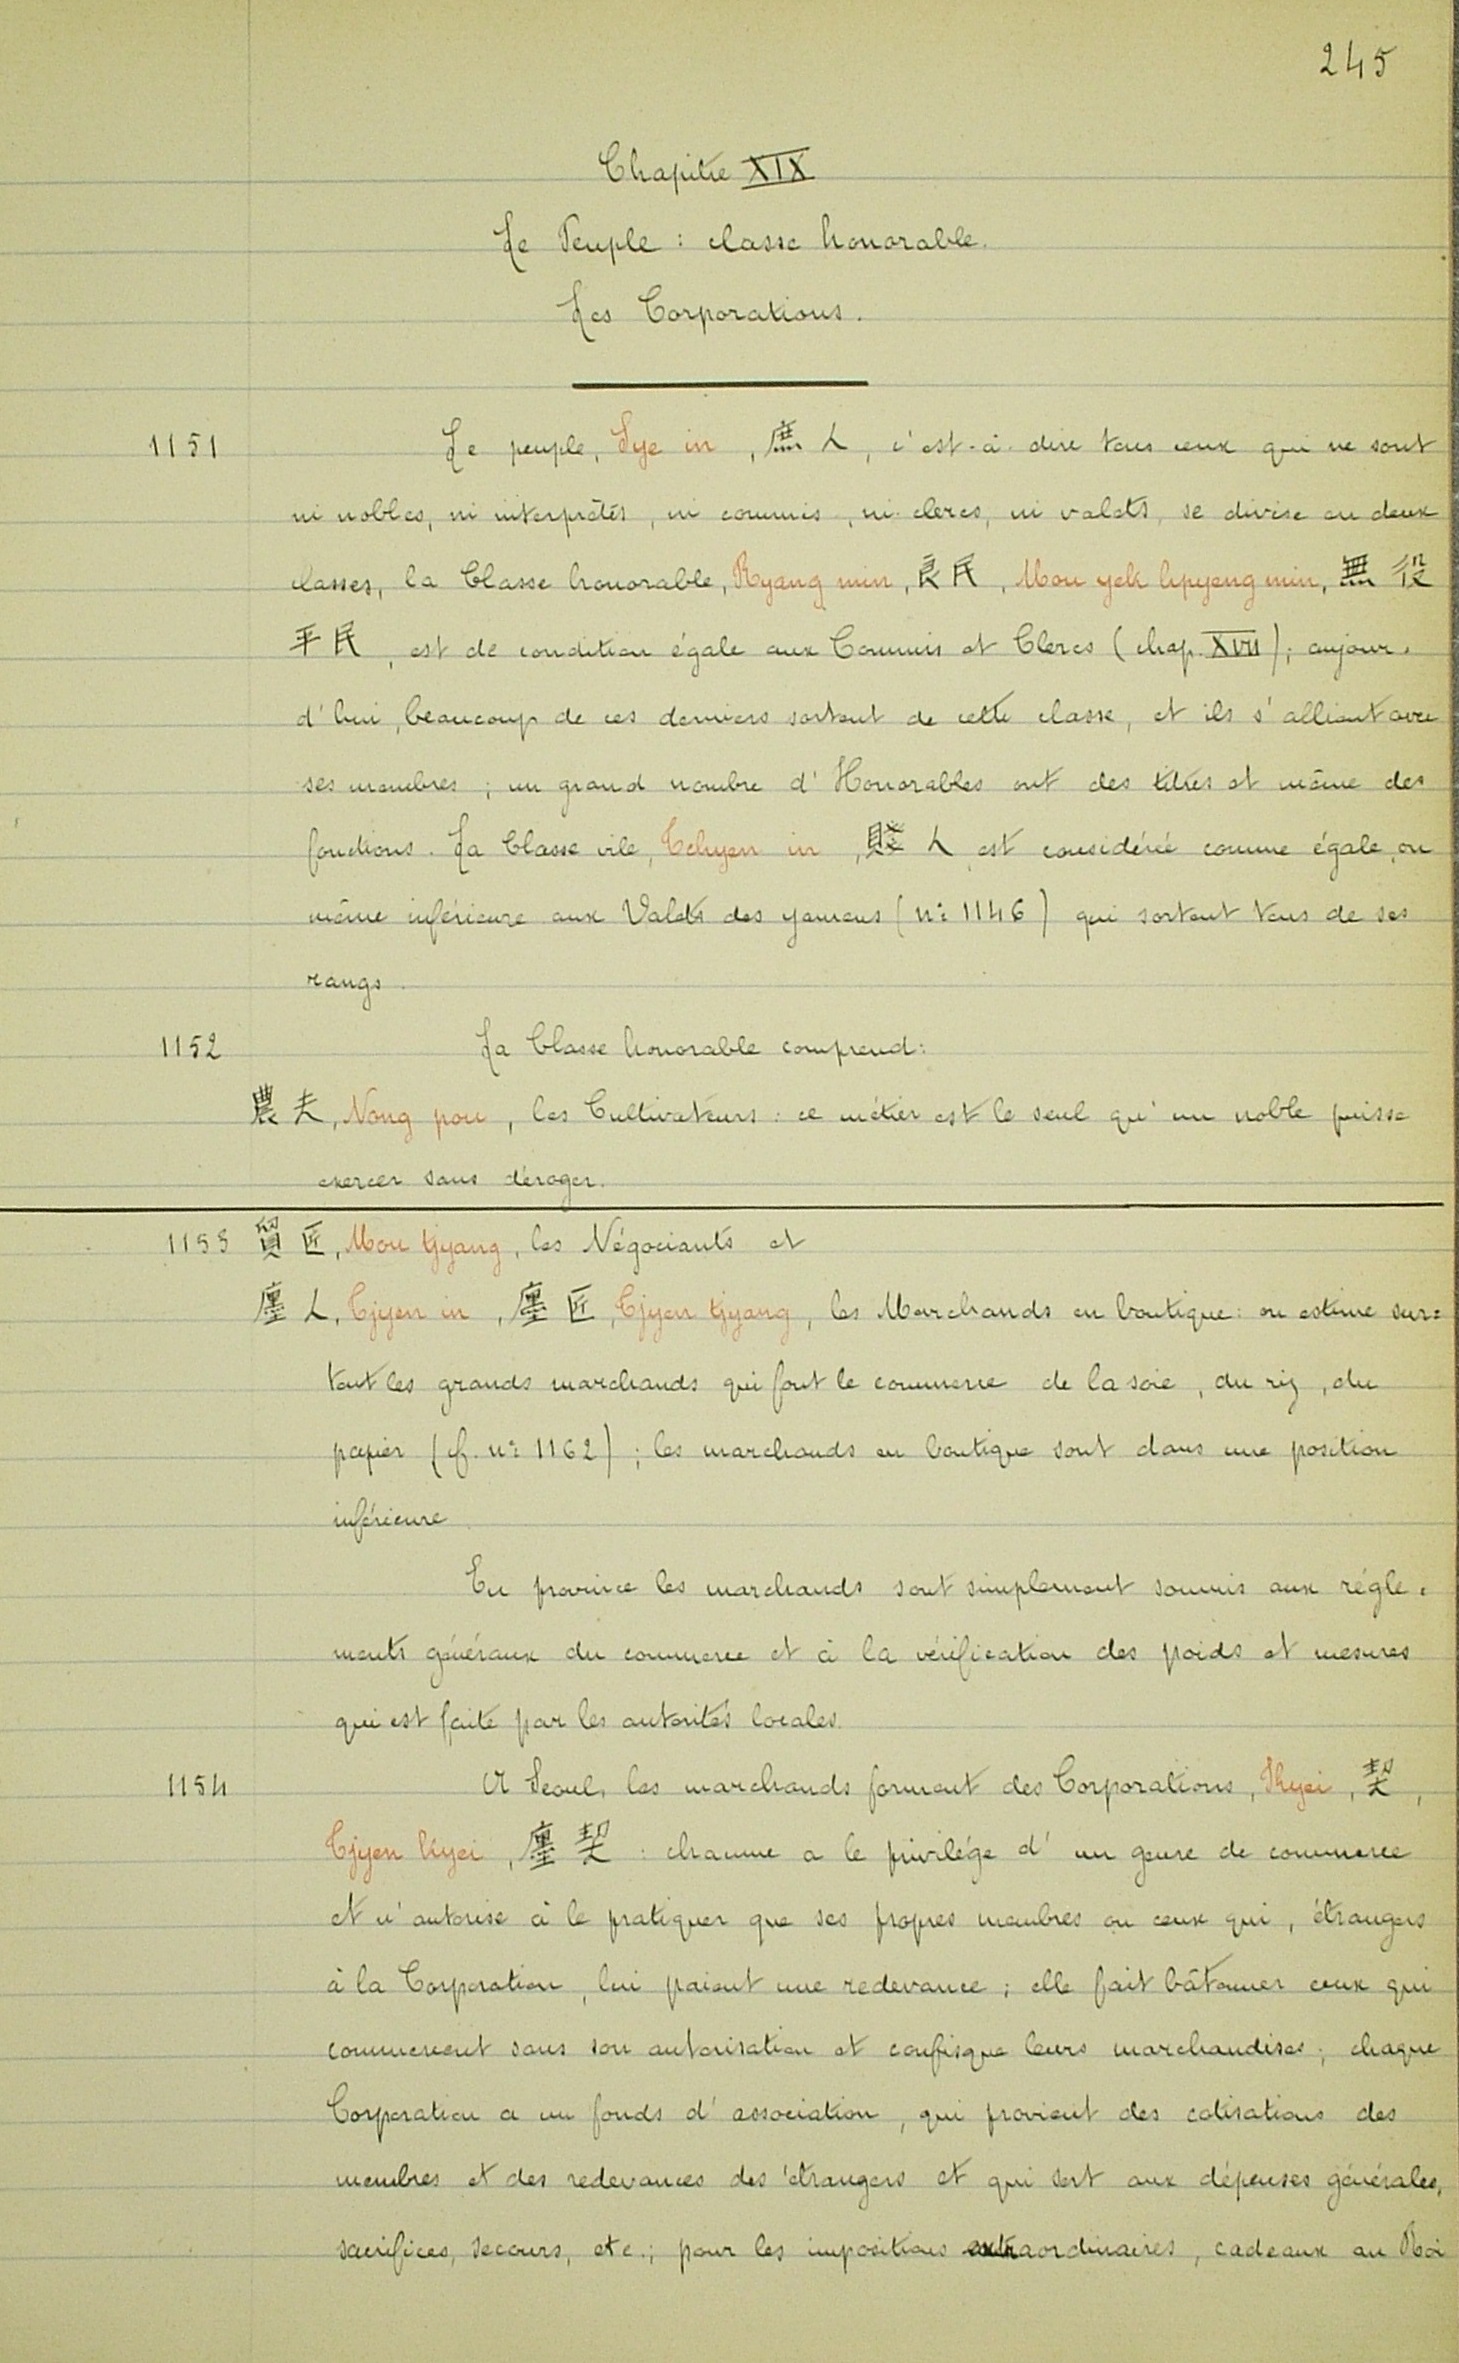 245
Chapitre XIX
Le Peuple : classe honorable.
Les Corporations.
1151 Le peuple, Sye in, 庶人, c'est-à-dire tous ceux qui ne sont
ni nobles, ni interprètes, ni commis, ni clercs, ni valets, se divise en deux
classes, la Classe honorable, Ryang min, 良民, Mou yek hpyeng min, 無役
平民, est de condition égale aux Commis et Clercs (chap. XVII); aujour-
d'hui, beaucoup de ces derniers sortent de cette classe, et ils s'allient avec
ses membres ; un grand nombre d'Honorables ont des titres et même des
fonctions. La Classe vile, Tchyen in, 賤人 est considérée comme égale, ou
même inférieure aux Valets des yamens (nº 1146) qui sortent tous de ses
rangs.
1152 La Classe honorable comprend:
農夫, Nong pou, les Cultivateurs : ce métier est le seul qu'un noble puisse
exercer sans déroger.
1153 貿匠, Mou tjyang, les Négociants et
廛人, Tjyen in, 廛匠, Tjyen tjyang, les Marchands en boutique : on estime sur=
tout les grands marchands qui font le commerce de la soie, du riz, du
papier (cf. nº 1162) ; les marchands en boutique sont dans une position
inférieure.
En province les marchands sont simplement soumis aux régle-
ments généraux du commerce et à la vérification des poids et mesures
qui est faite par les autorités locales.
1154 A Seoul, les marchands forment des Corporations, Kyei, 契,
Tjyen kyei, 廛契 : chacune a le privilége d'un genre de commerce
et n'autorise à le pratiquer que ses propres membres ou ceux qui, étrangers
à la Corporation, lui paient une redevance ; elle fait bâtonner ceux qui
commercent sans son autorisation et confisque leurs marchandises ; chaque
Corporation a un fonds d'association, qui provient des cotisations des
membres et des redevances des étrangers et qui sert aux dépenses générales,
sacrifices, secours, etc. ; pour les impositions extraordinaires, cadeaux au Roi